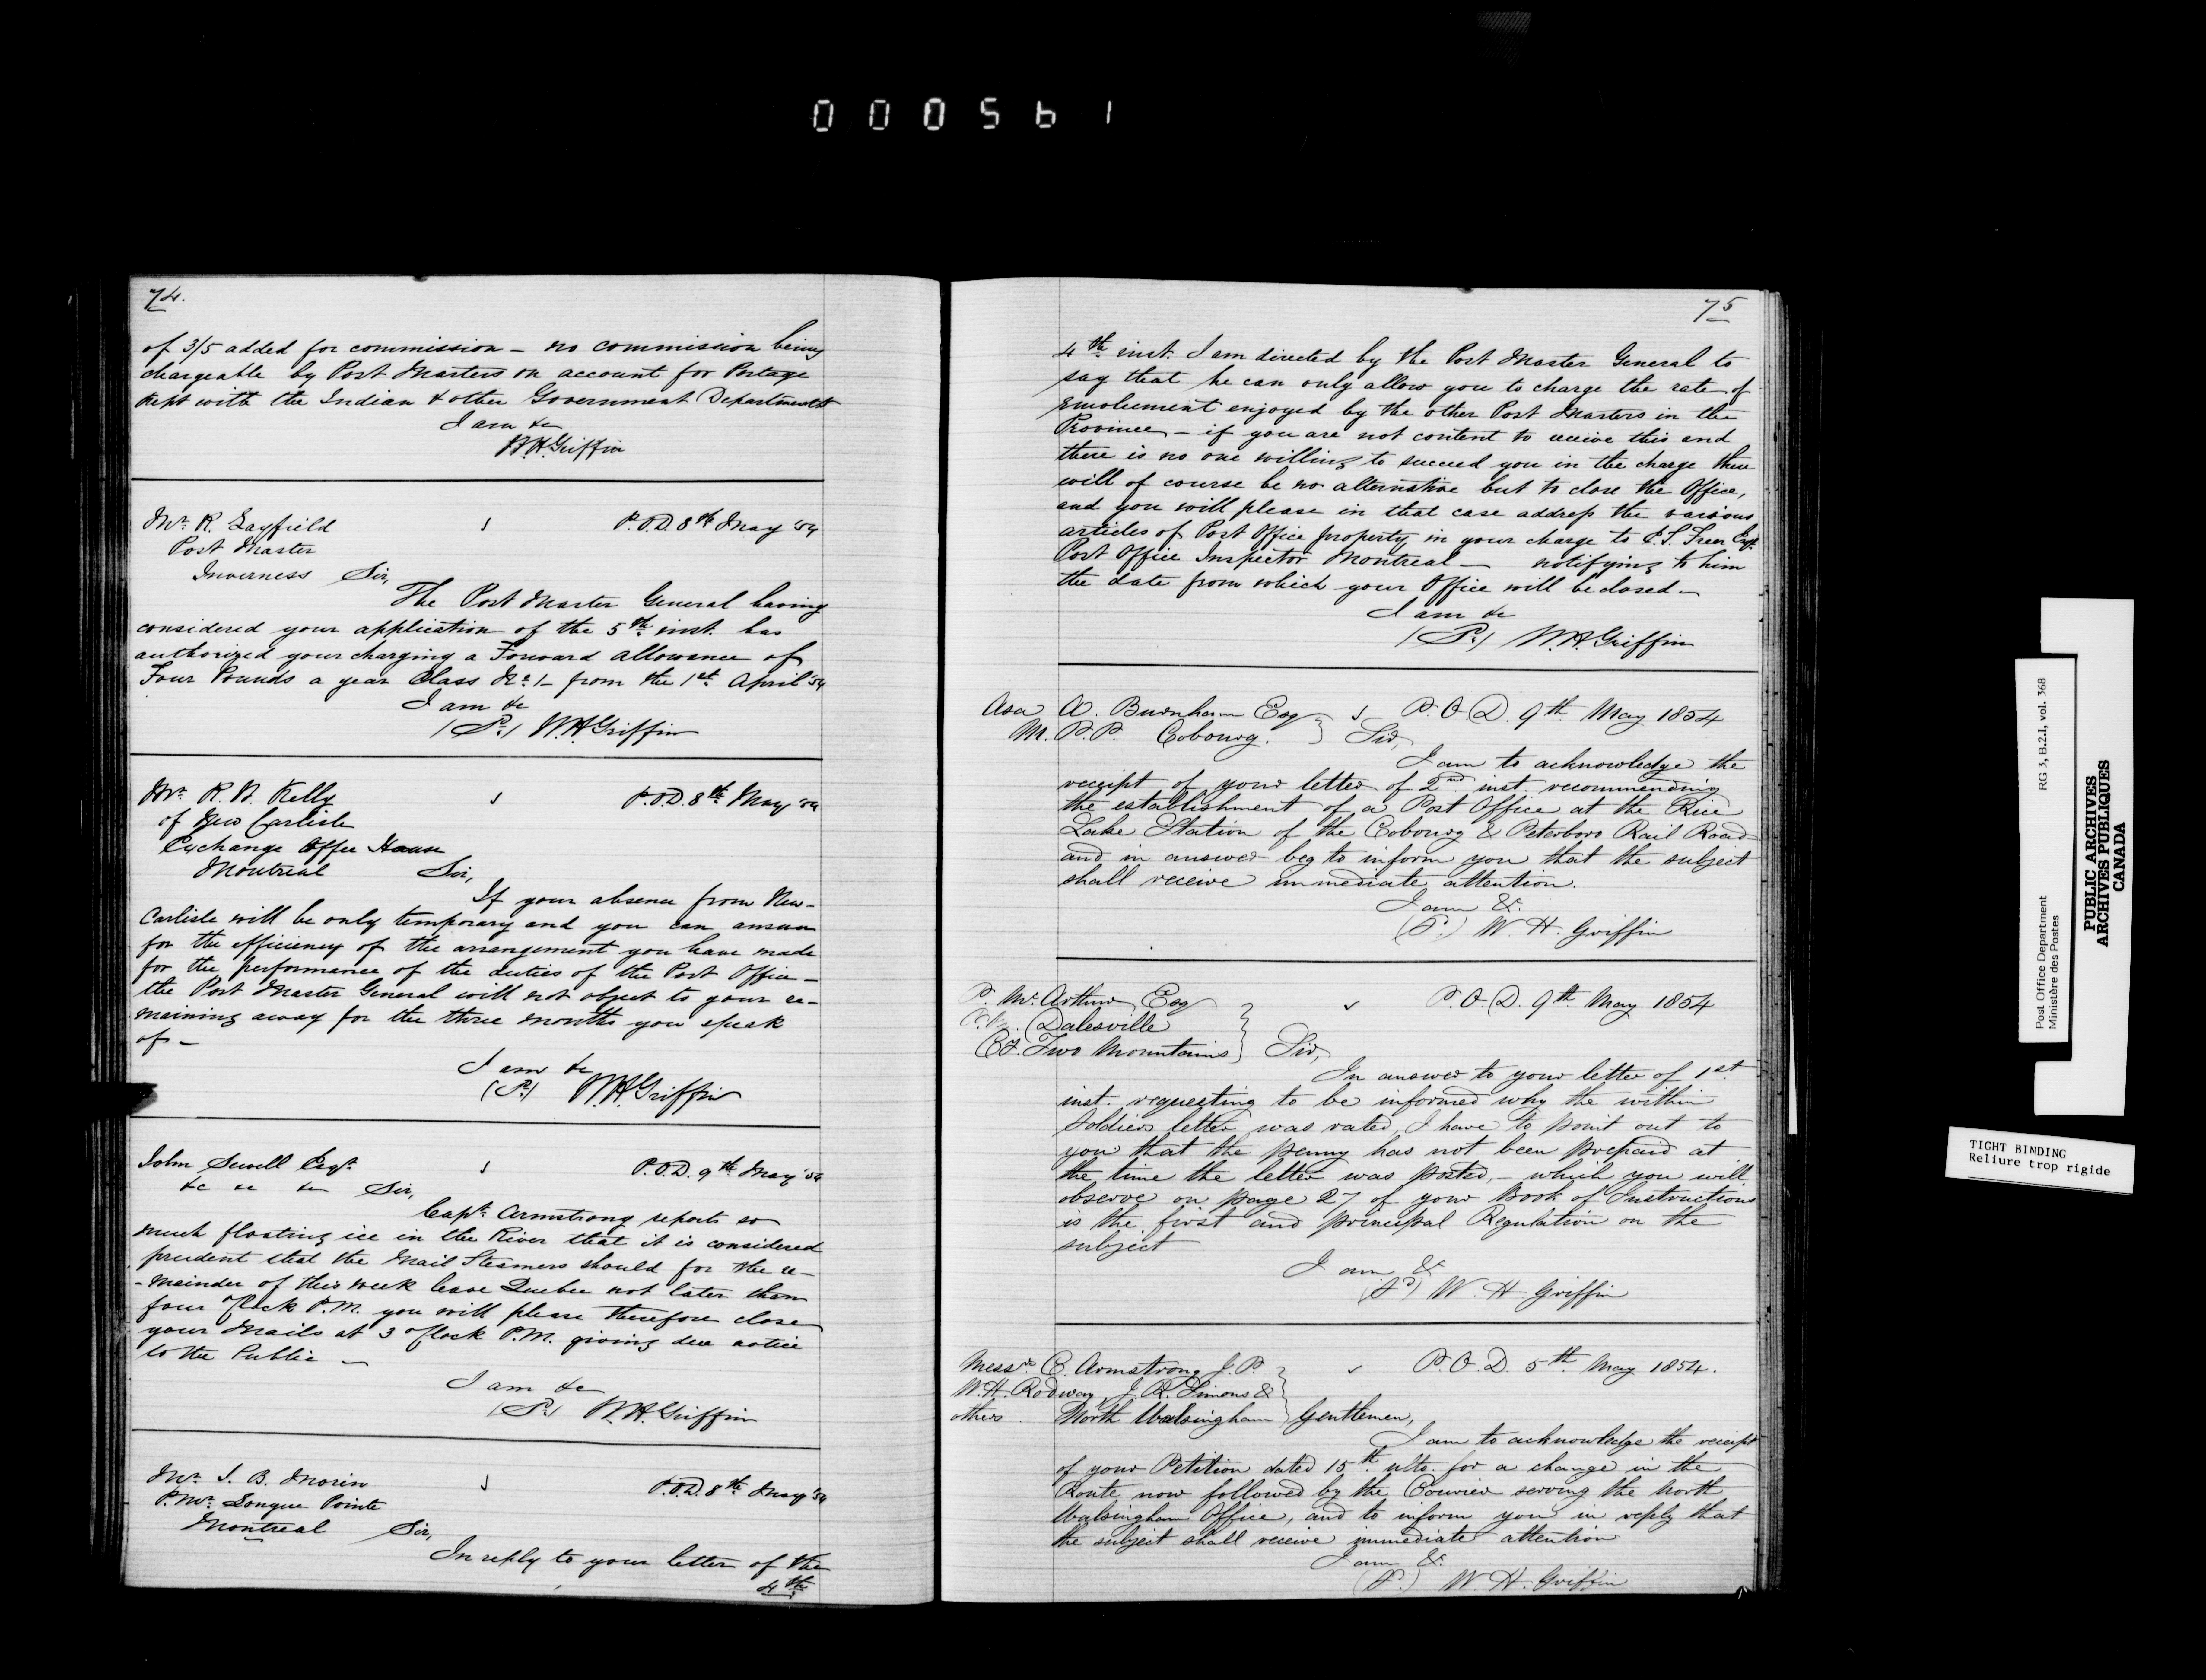 000561
74.
of 3/5 added for commission – no commission being
chargeable by Post Masters on account for Postage
kept with the Indian & other Government Departments
I am &c
W.H. Griffin
Mr. R. Layfield
P.O.D. 8th May '54
Post Master
Inverness Sir,
The Post Master General having
considered your application of the 5th inst. has
authorized your charging a Forward allowance of
Four Pounds a year Class No. 1 – from the 1st April '54
I am &c
W.H. Griffin
Mr. R. W. Kelly
P.O.D. 8th May '54
of New Carlisle
Exchange Coffee House
Montreal Sir,
If your absence from New-
Carlisle will be only temporary and you can answer
for the efficiency of the arrangement you have made
for the performance of the duties of the Post Office –
the Post Master General will not object to your re-
maining away for the three months you speak
of –
I am &c
W.H. Griffin
John Sewell Esqr.
P.O.D. 9th May '54
&c &c &c Sir,
Capt. Armstrong reports so
much floating ice in the River that it is considered
prudent that the Mail Steamers should for the re-
-mainder of this week leave Quebec not later than
four o'Clock P.M. you will please therefore close
your Mails at 3 o'Clock P.M. giving due notice
to the Public –
I am &c
W.H. Griffin
Mr. J. B. Morin
P.O.D. 8th May '54
P.Mr. Longue Pointe
Montreal Sir,
In reply to your letter of the
4th
75
4th inst. I am directed by the Post Master General to
say that he can only allow you to charge the rate of
Emolument enjoyed by the other Post Masters in the
Province – if you are not content to receive this and
there is no one willing to succeed you in the charge there
will of course be no alternative but to close the Office,
and you will please in that case address the various
articles of Post Office property in your charge to E.S. Freer Esqr.
Post Office Inspector Montreal – notifying to him
the date from which your Office will be closed –
I am &c
W.H. Griffin
Asa A. Burnham Esq
P.O.D. 9th May 1854
M.P.P. Cobourg. Sir,
I am to acknowledge the
receipt of your letter of 2nd inst. recommending
the establishment of a Post Office at the Rice
Lake Station of the Cobourg & Peterboro Rail Road
and in answer beg to inform you that the subject
shall receive immediate attention.
I am &c
W. H. Griffin
P. McArthur Esq
P.O.D. 9th May 1854
Dalesville
Co. Two Mountains Sir,
In answer to your letter of 1st
inst. requesting to be informed why the within
Soldiers letter was rated, I have to point out to
you that the penny has not been prepaid at
the time the letter was posted, – which you will
observe on page 27 of your Book of Instructions
is the first and principal Regulation on the
subject
I am &c
W. H. Griffin
Messrs C. Armstrong J.P.
P.O.D. 5th May 1854.
W.H. Rodway, J. R. Simons &
others. North Walsingham Gentlemen,
I am to acknowledge the receipt
of your Petition dated 15th ulto. for a change in the
Route now followed by the Courier serving the North
Walsingham Office, and to inform you in reply that
the subject shall receive immediate attention
I am &c
W. H. Griffin
Post Office Department RG 3, B.2.I, vol. 368
Ministère des Postes
PUBLIC ARCHIVES
ARCHIVES PUBLIQUES
CANADA
TIGHT BINDING
Reliure trop rigide